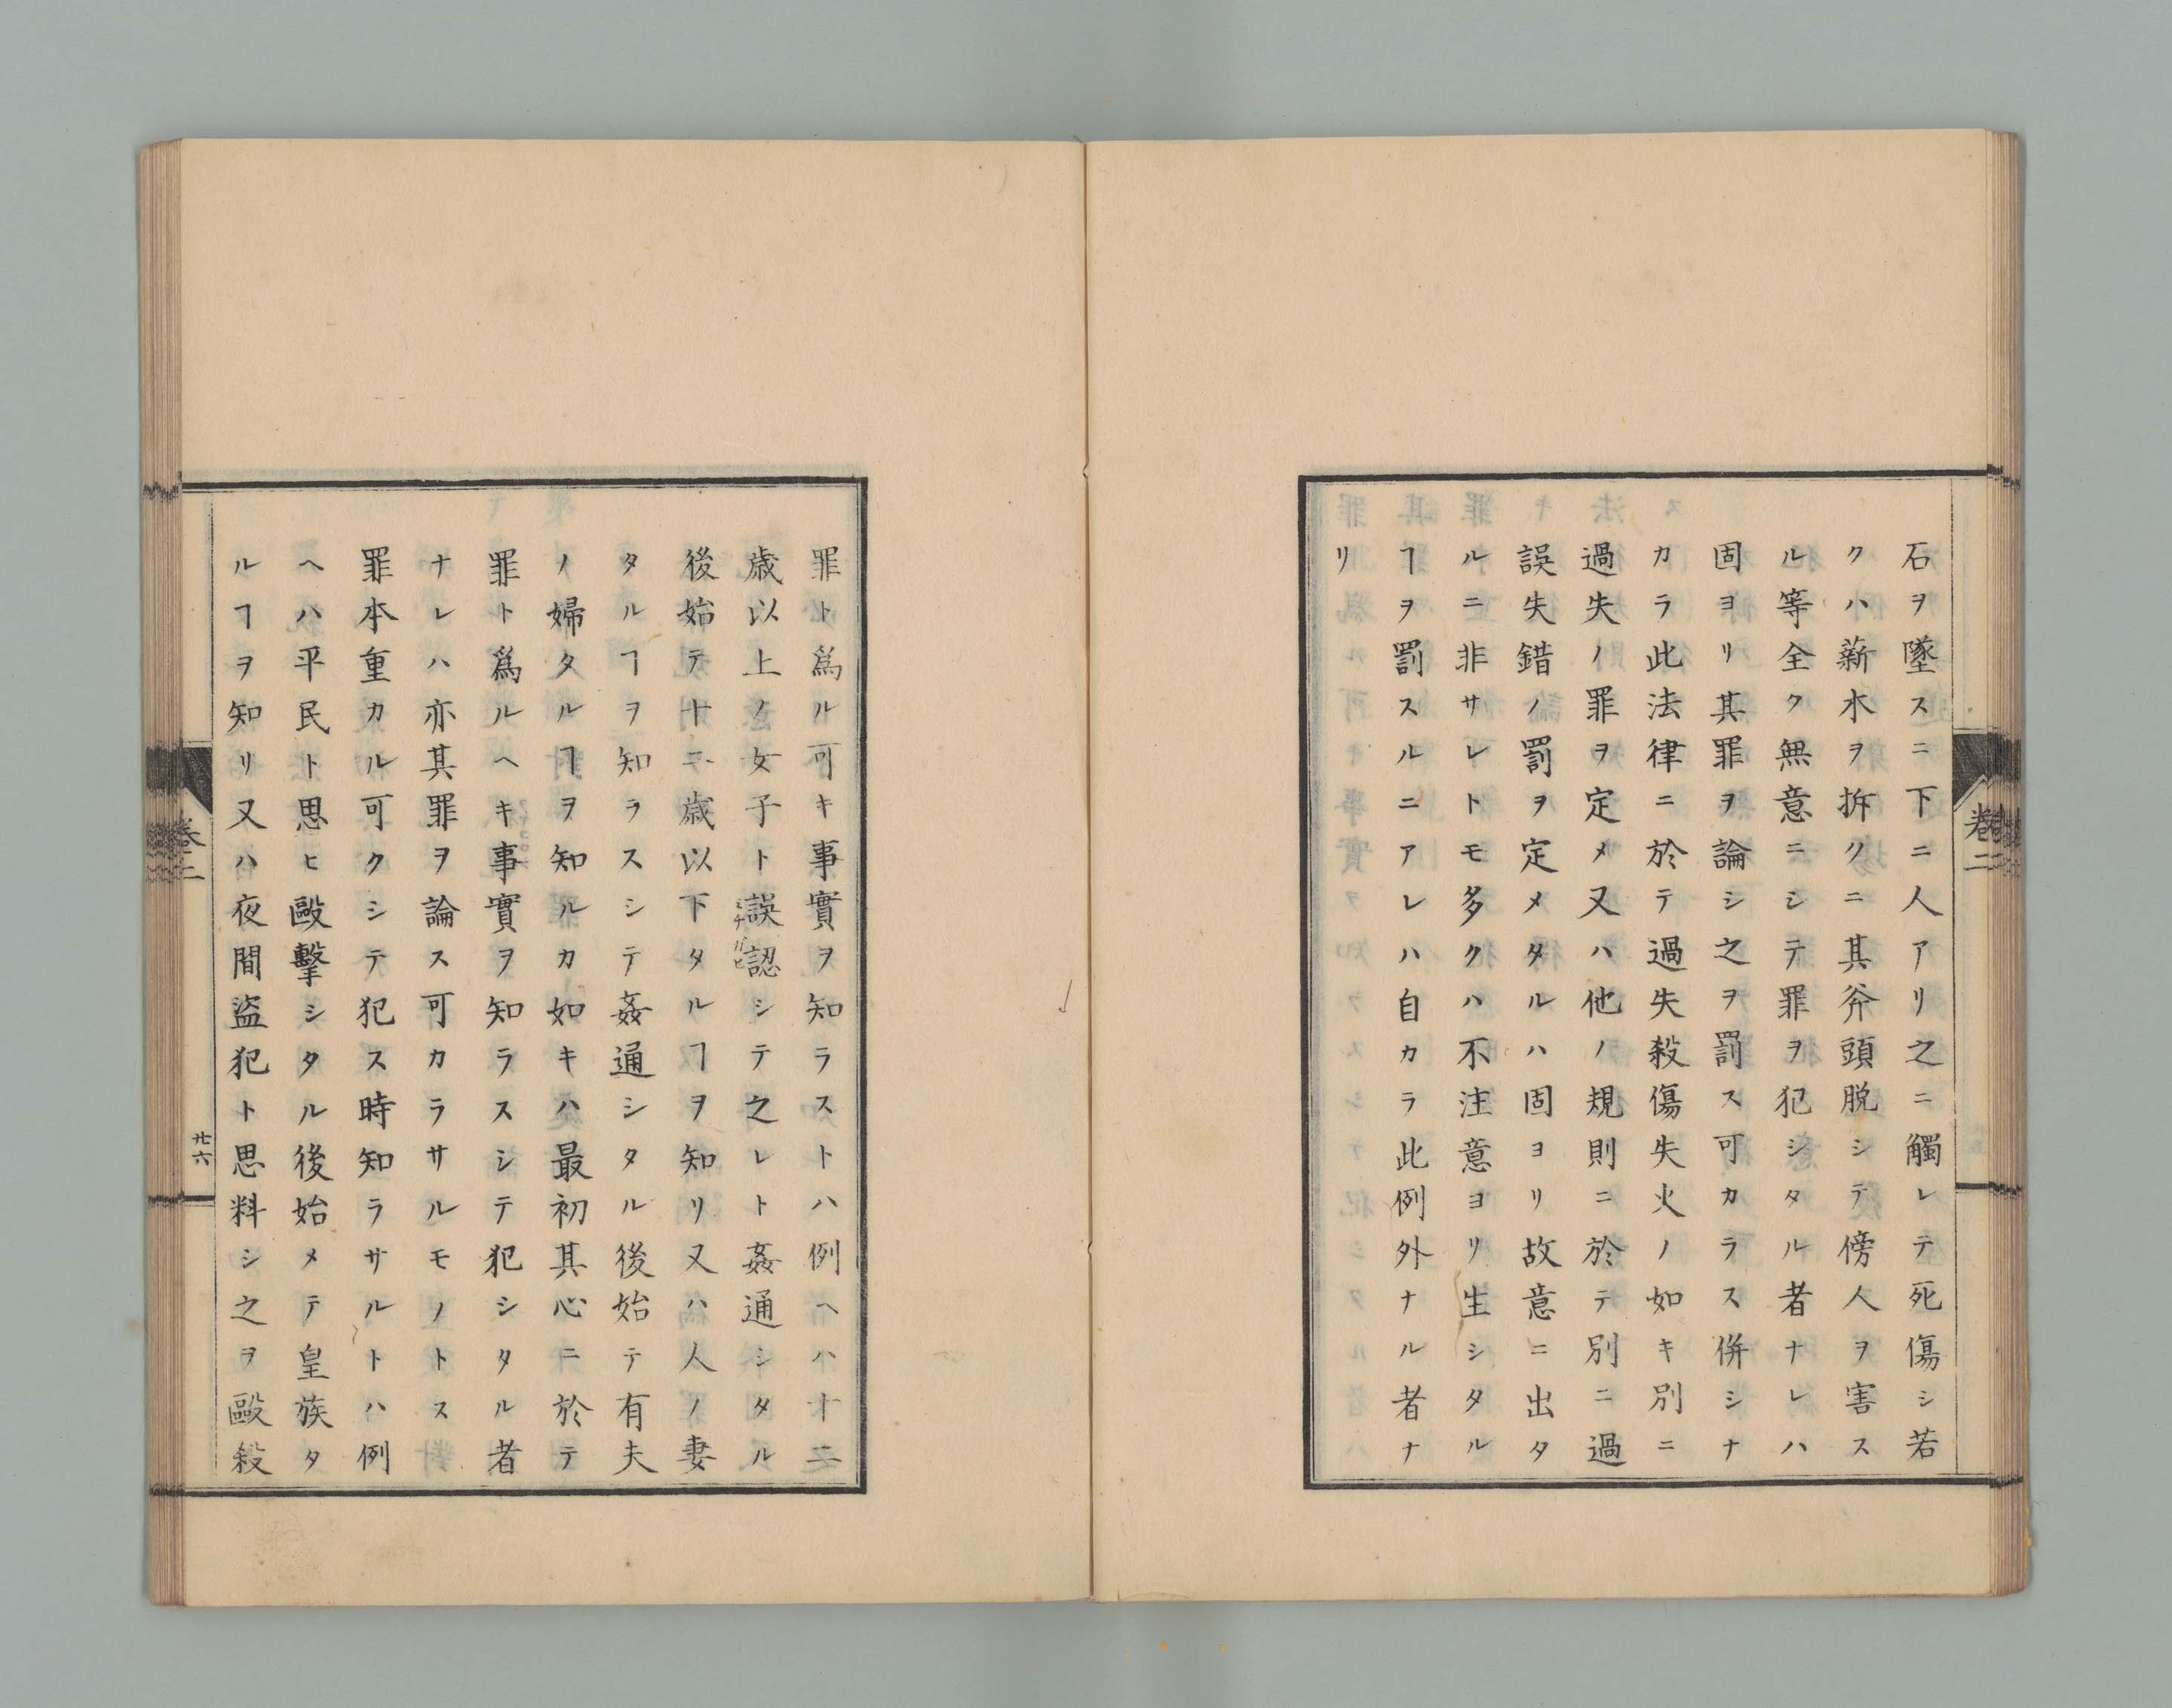 石ヲ墜スニ下ニ人アリ之ニ觸レテ死傷シ若
クハ薪木ヲ拆クニ其斧頭脱シテ傍人ヲ害ス
ル等全ク無意ニシテ罪ヲ犯シタル者ナレハ
固ヨリ其罪ヲ論シ之ヲ罰ス可カラス併シナ
カラ此法律ニ於テ過失殺傷失火ノ如キ別ニ
過失ノ罪ヲ定メ又ハ他ノ規則ニ於テ別ニ過
誤失錯ノ罰ヲ定メタルハ固ヨリ故意ニ出タ
ルニ非サレトモ多クハ不注意ヨリ生シタル
ヿヲ罰スルニアレハ自カラ此例外ナル者ナ
リ
卷二
罪ト爲ル可キ事實ヲ知ラストハ例ヘハ十二
歳以上ノ女子ト誤認シテ之レト姦通シタル
ミチガヒ
後始テ十二歳以下タルヿヲ知リ又ハ人ノ妻
タルヿヲ知ラスシテ姦通シタル後始テ有夫
ノ婦タルヿヲ知ルカ如キハ最初其心ニ於テ
罪ト爲ルヘキ事實ヲ知ラスシテ犯シタル者
ナレハ亦其罪ヲ論ス可カラサルモノトス
罪本重カル可クシテ犯ス時知ラサルトハ例
ヘハ平民ト思ヒ毆擊シタル後始メテ皇族タ
ルヿヲ知リ又ハ夜間盜犯ト思料シ之ヲ毆殺
卷二
廿六